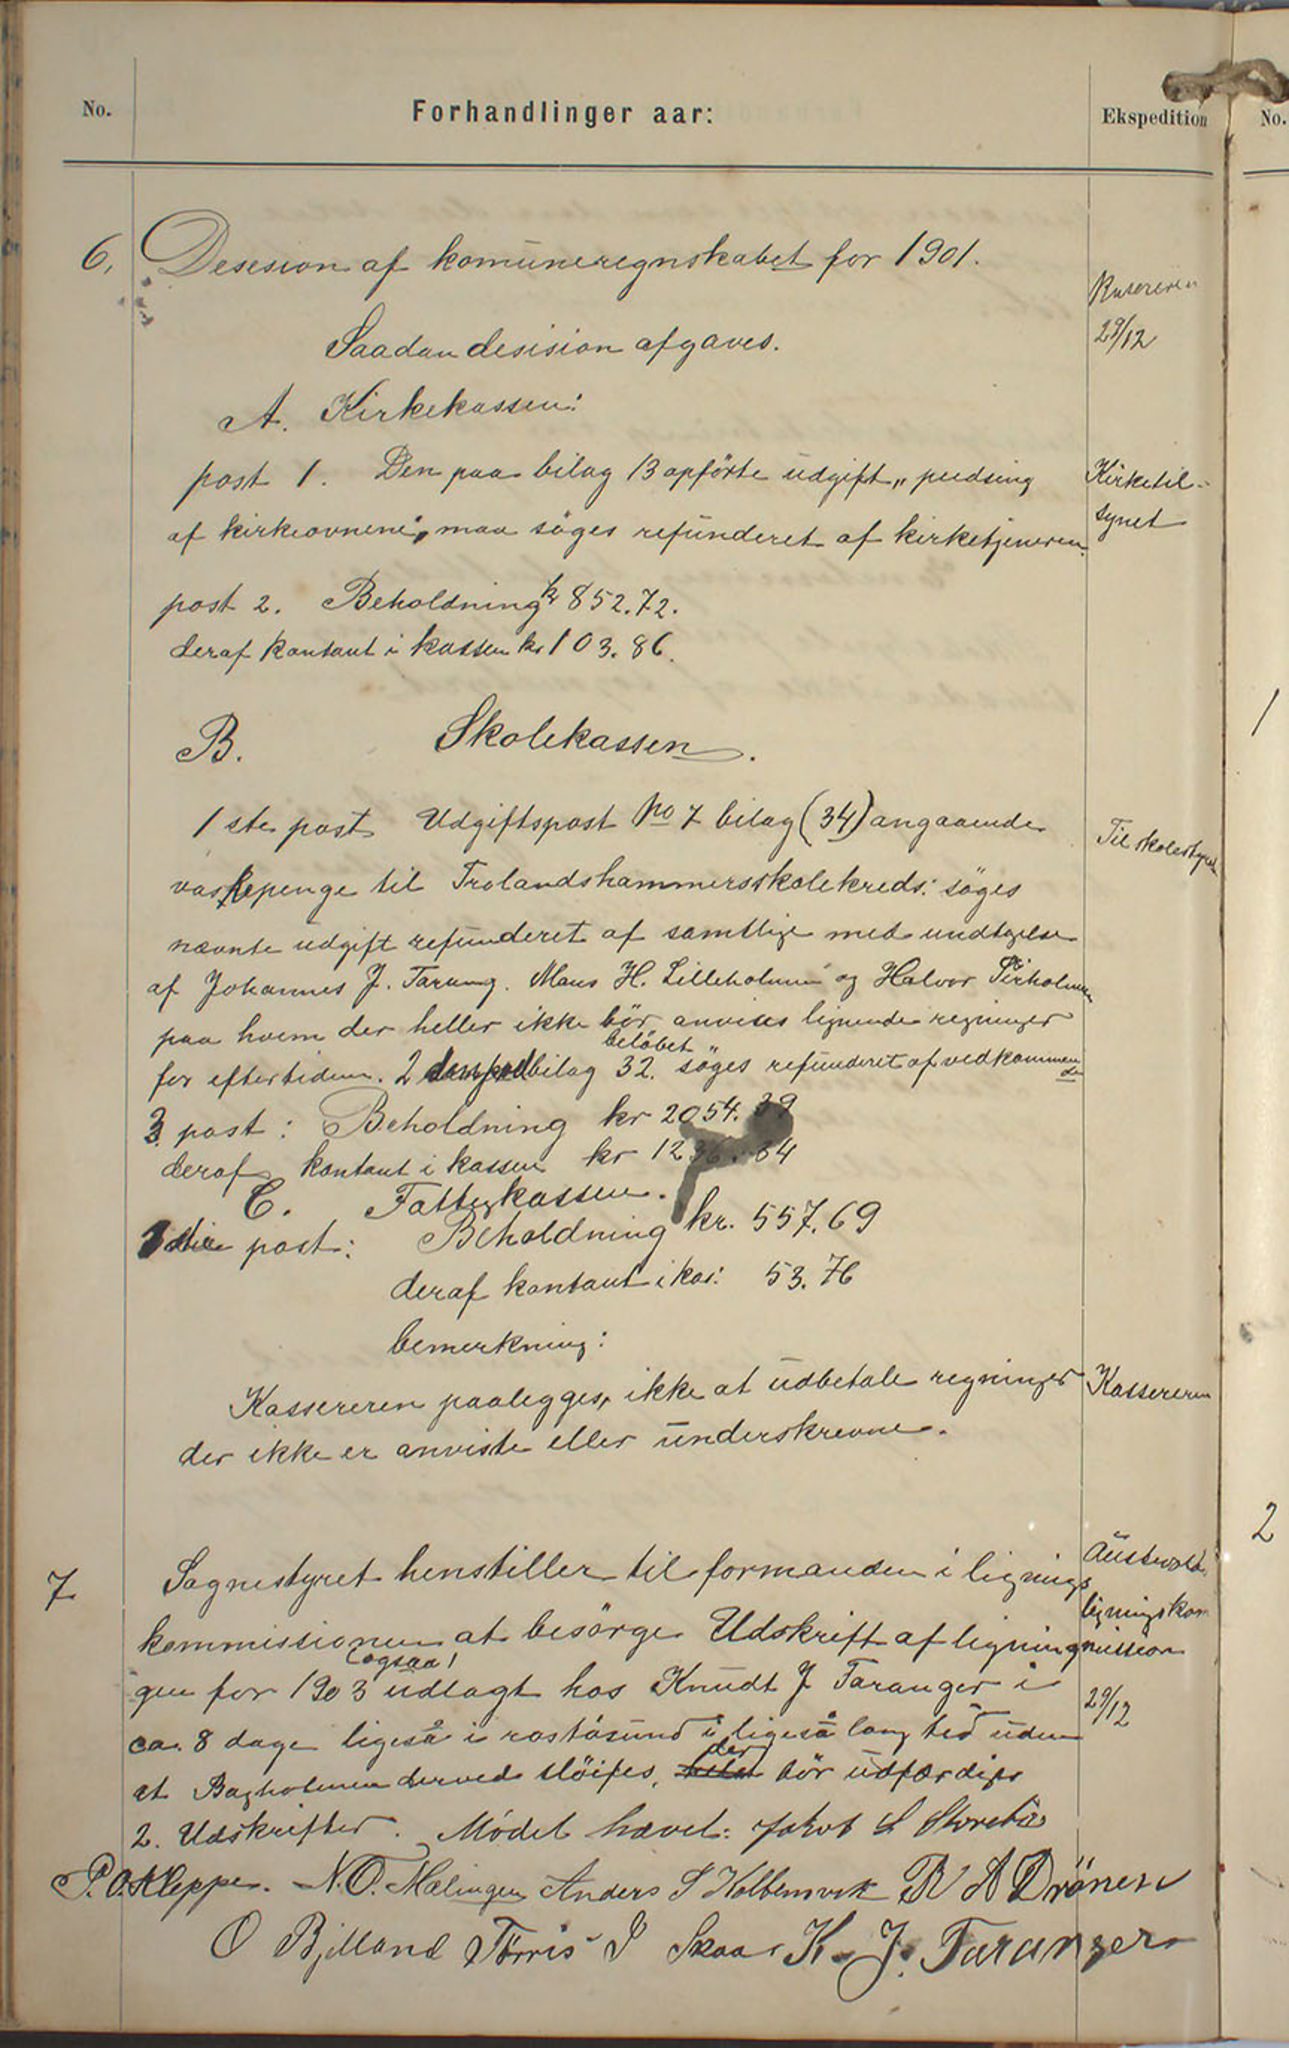 No.
Forhandlinger aar:
Ekspedition
No.
6. Desesion af komuneregnskabet for 1901.
Kasereren
29/12
Saadan desision afgaves.
A. Kirkekassen:
post 1. Den paa bilag 13 opförte udgift „pudsing
Kirketil-
synet
af kirkeovnene", maa söges refunderet af kirketjeneren.
post 2. Beholdning kr 852.72.
deraf kontant i kassen kr 103.86.
B. Skolekassen.
1
1ste post Udgiftspost No 7 bilag (34) angaaende
Til skolestyret
vaskepenge til Trolandshammersskolekreds: söges
nævnte udgift refunderet af samtlige med undtagelse
af Johannes J. Tarang. Mons H. Lilleholmen og Halvor Peirholmen
paa hvem der heller ikke bör anvises lignende regninger
for eftertiden. 2den post bilag 32. belöbet söges refunderet af vedkommende
3 post: Beholdning kr 2054.39
deraf kontant i kassen kr 1236.34
C. Fattigkassen.
1ste post: Beholdning kr. 557.69
deraf kontant i kas: 53.76
bemerkning:
Kassereren paalegges, ikke at udbetale regninger
Kassereren
der ikke er anviste eller underskrevne.
2
7 Sognestyret henstiller til formanden i lignings
Austevold
ligningskom
mission
29/12
kommissionen at besörge Udskrift af ligning
gen for 1903 (ogsaa) udlagt hos Knudt J Taranger i
ca. 8 dage ligeså i rostösund i ligeså lang tid uden
at Bagholmen derved slöifes, der bör udfærdiges
2. Udskrifter. Mödet hævet: Jakob L Storebö
P. O. Kleppe. N. O. Mælingen Anders S Kolbensvik R A Drönen
O Bjelland Törris J Skaar K. J. Taranger